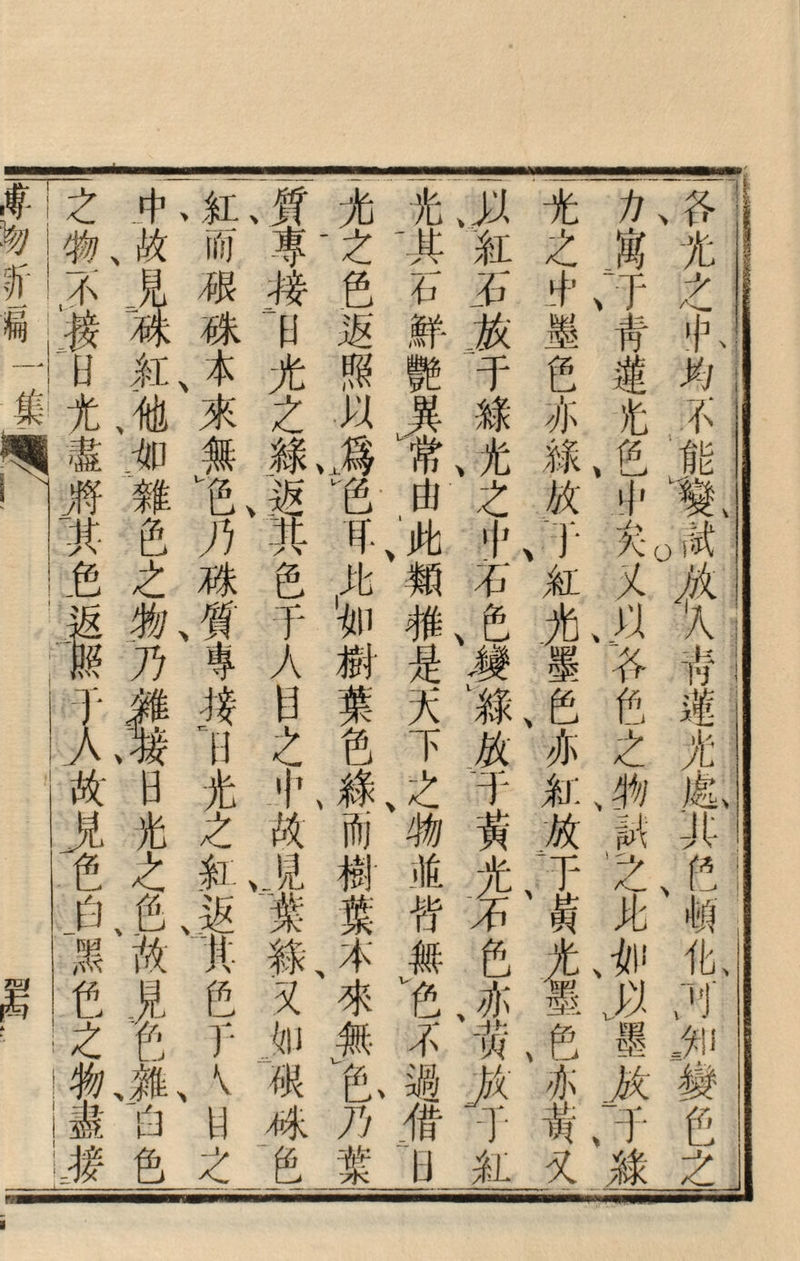 各光之中、均不能變、試放入青蓮光處、其色頓化、可知變色之
力、寓于青蓮光色中矣。又以各色之物試之、比如以墨放于綠
光之中、墨色亦綠、放于紅光、墨色亦紅、放于黃光、墨色亦黃、又
以紅石放于綠光之中、石色變綠、放于黃光、石色亦黃、放于紅
光、其石鮮艷異常、由此類推、是天下之物並皆無色、不過借日
光之色返照以爲色耳、比如樹葉色綠、而樹葉本來無色、乃葉
質專接日光之綠、返其色于人目之中、故見葉綠、又如硍硃色
紅、而硍硃本來無色、乃硃質專接日光之紅、返其色于人目之
中、故見硃紅、他如雜色之物、乃雜接日光之色、故見色雜、白色
之物、不接日光、盡將其色返照于人、故見色白、黑色之物、盡接
博物新編一集